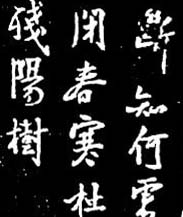 斷知何處
閉春寒杜
殘陽樹